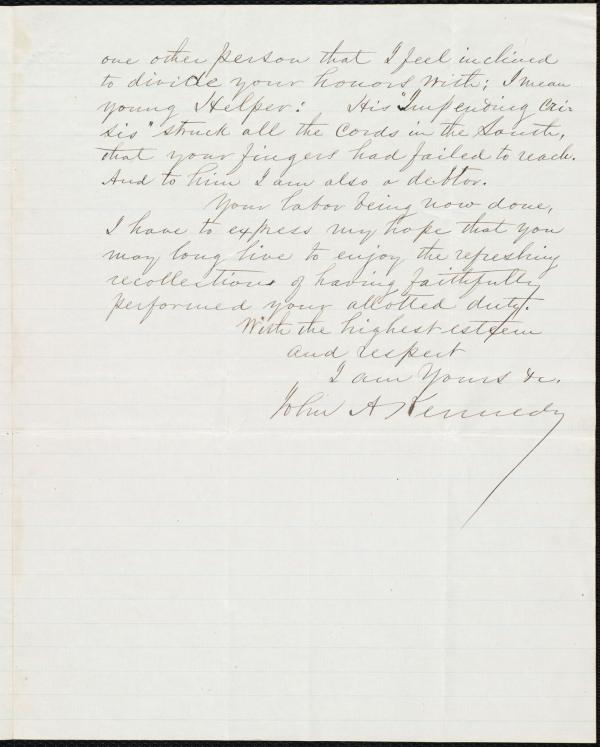 one other person that I feel inclined
to divide your honors with; I mean
young Helper: His "Impending Cri-
sis" struck all the Cords in the South,
that your fingers had failed to reach.
And to him I am also a debtor.
Your labor being now done,
I have to express my hope that you
may long live to enjoy the refreshing
recollections of having faithfully
performed your allotted duty.
With the highest esteem
and respect
I am Yours &c.
John A Kennedy